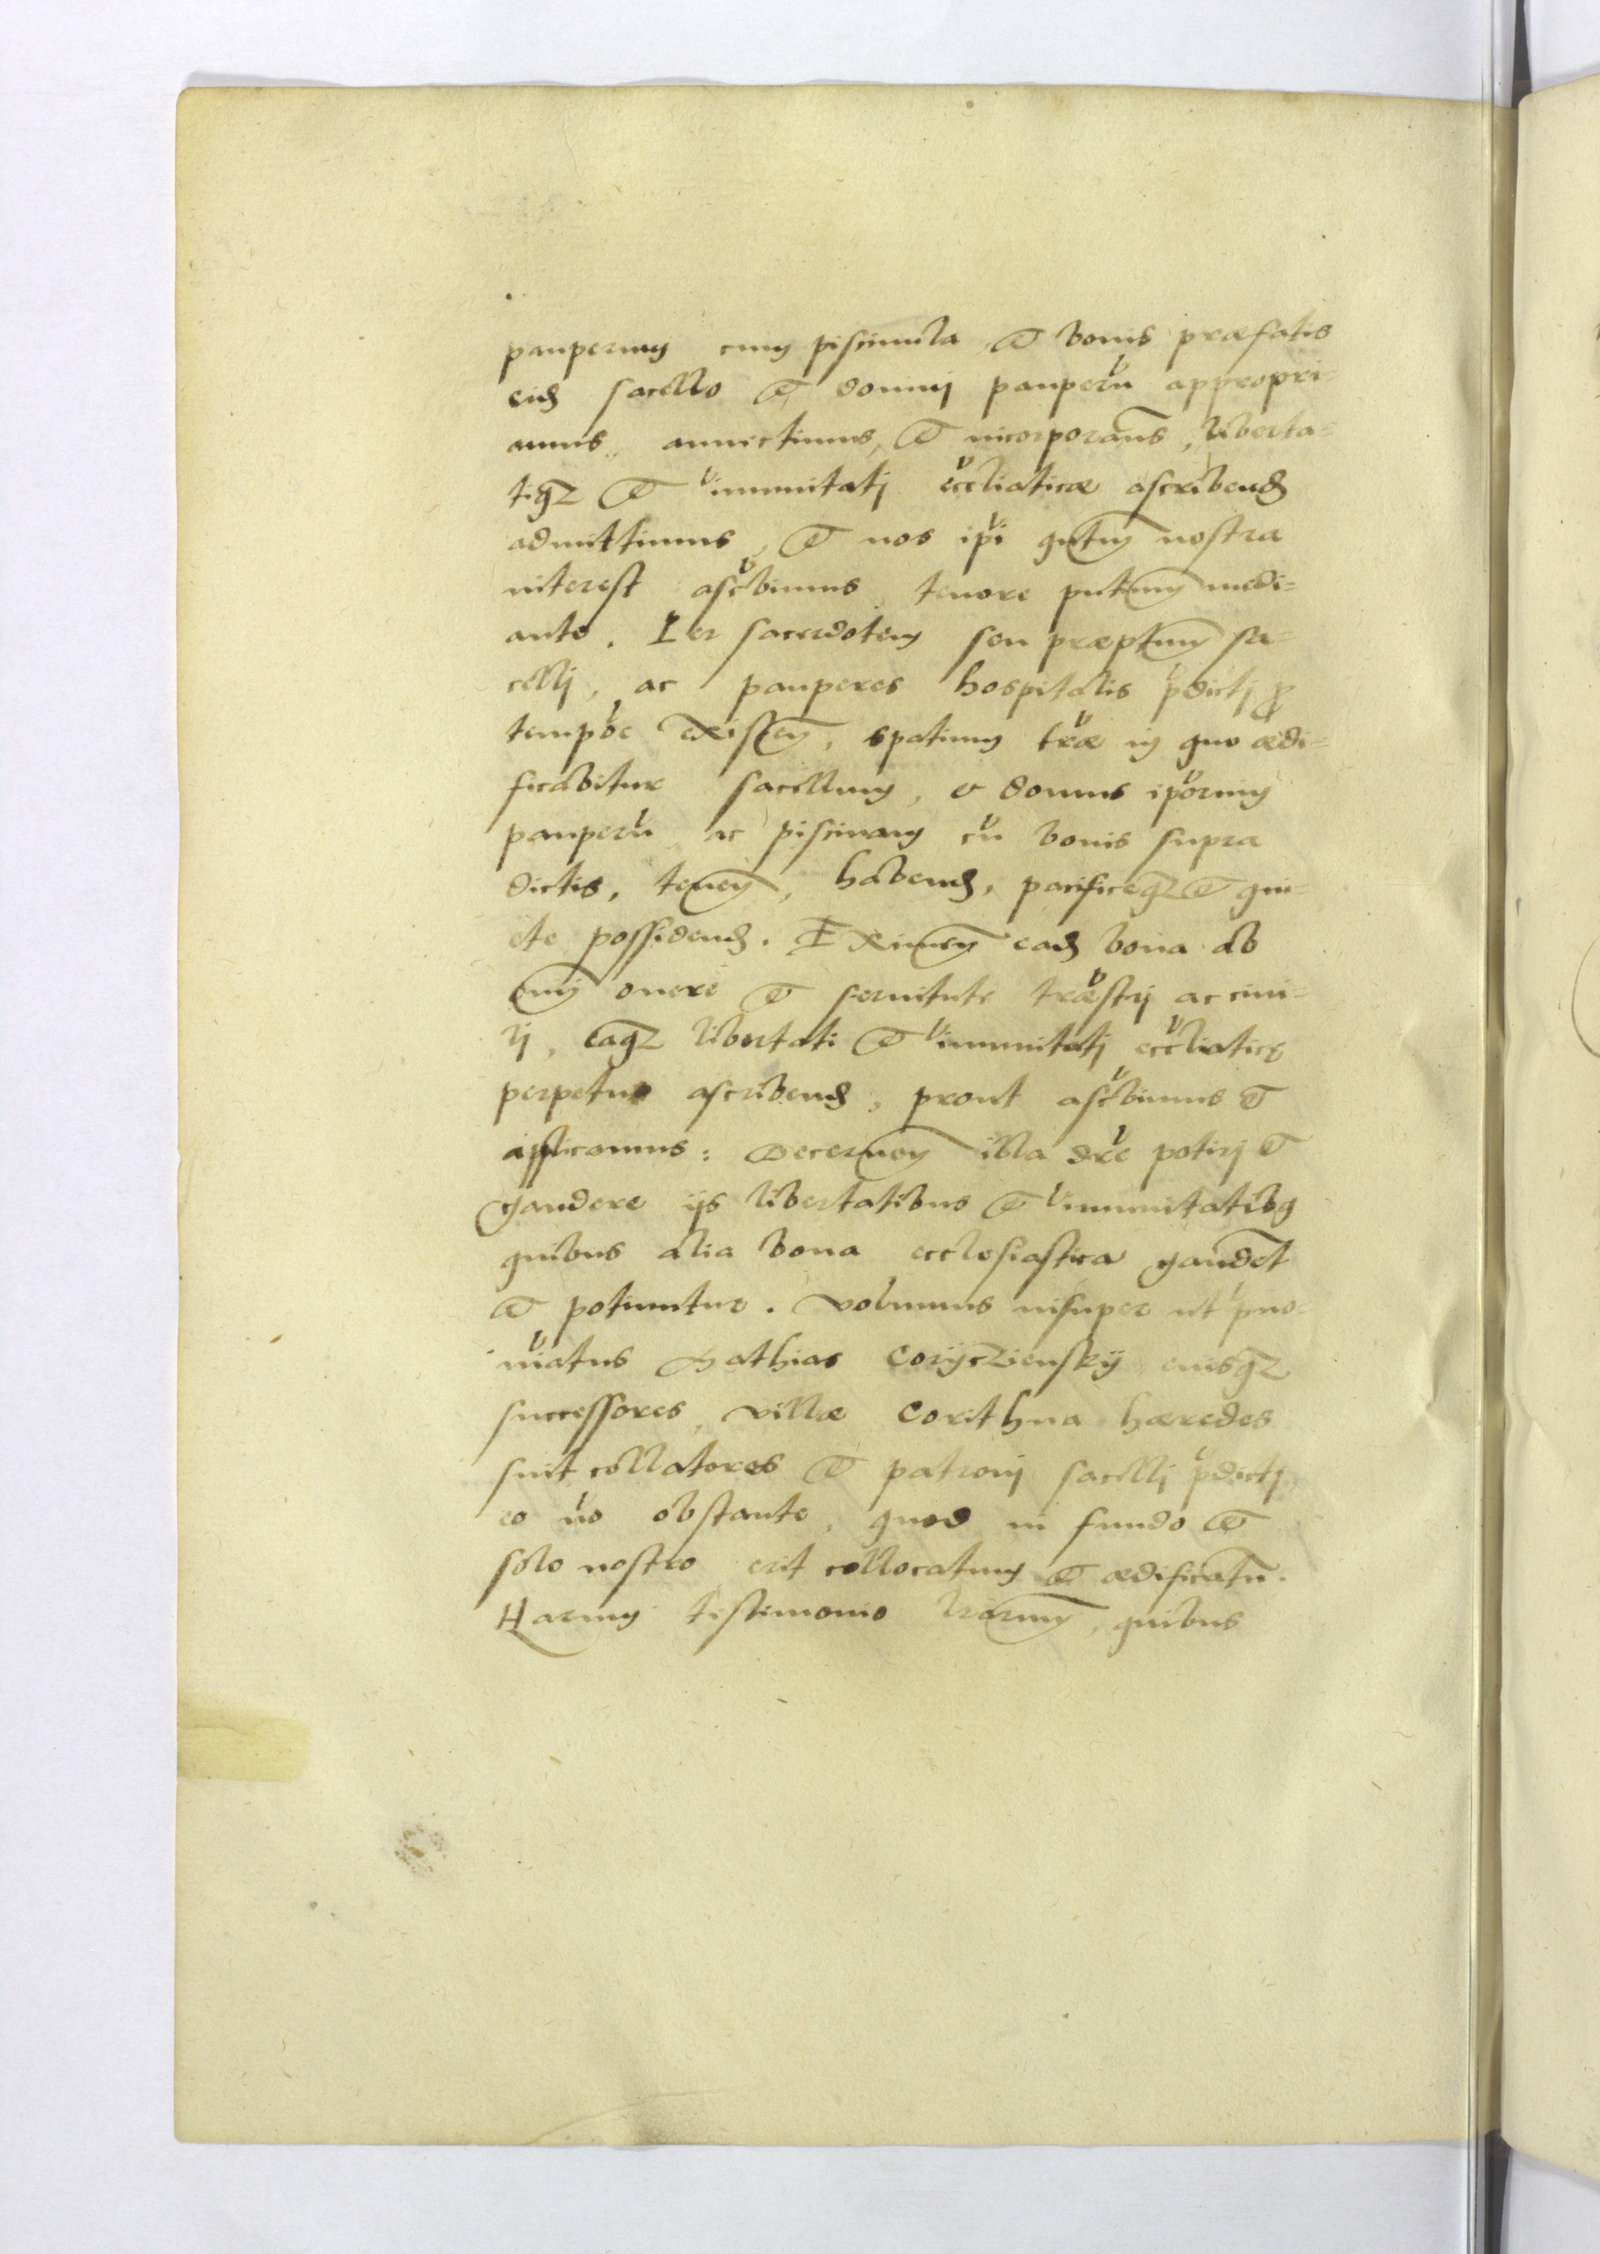 pauperum cum piscinula et bonis præfatis
eidē sacello et domui pauperū appropri-
amus, annectimus, et incorporam̄s, liberta-
tiq3 et immunitatj eccliaticæ ascribend
admittimus, et nos ipi qntm nostra
interest ascbimus tenore pntium medi-
ante. Per sacerdotem seu præptum sa-
cellj, ac pauperes hospitalis pdictj pro
tempoe existen, spatium træ in quo ædi-
ficabitur sacellum, et domus ipōrum
pauperū ac piscinam cū bonis supra
dictis, tenen, habend, pacificeq3 et qui-
ete possidend. Eximen ead bona ab
omi onere et seruitute træstrj ac ciui-
lj, eaq3 libertati et immunitatj eccliaticę
perpetuo ascribend, prout ascbimus et
applicamus: Decernen illa dre potirj et
gaudere ijs libertatibus et immunitatibq
quibus alia bona ecclesiastica gaudēt
et potiuntur. Volumus insuper ut pno-
miatus Mathias Coryczienskÿ eiusq3
successores, villæ Corithna hæredes
sint collatores et patronj sacellj pdictj
eo nō obstante, quod in fundo et
solo nostro erit collocatum et ædificatū.
Harum testimonio lrarum, quibus